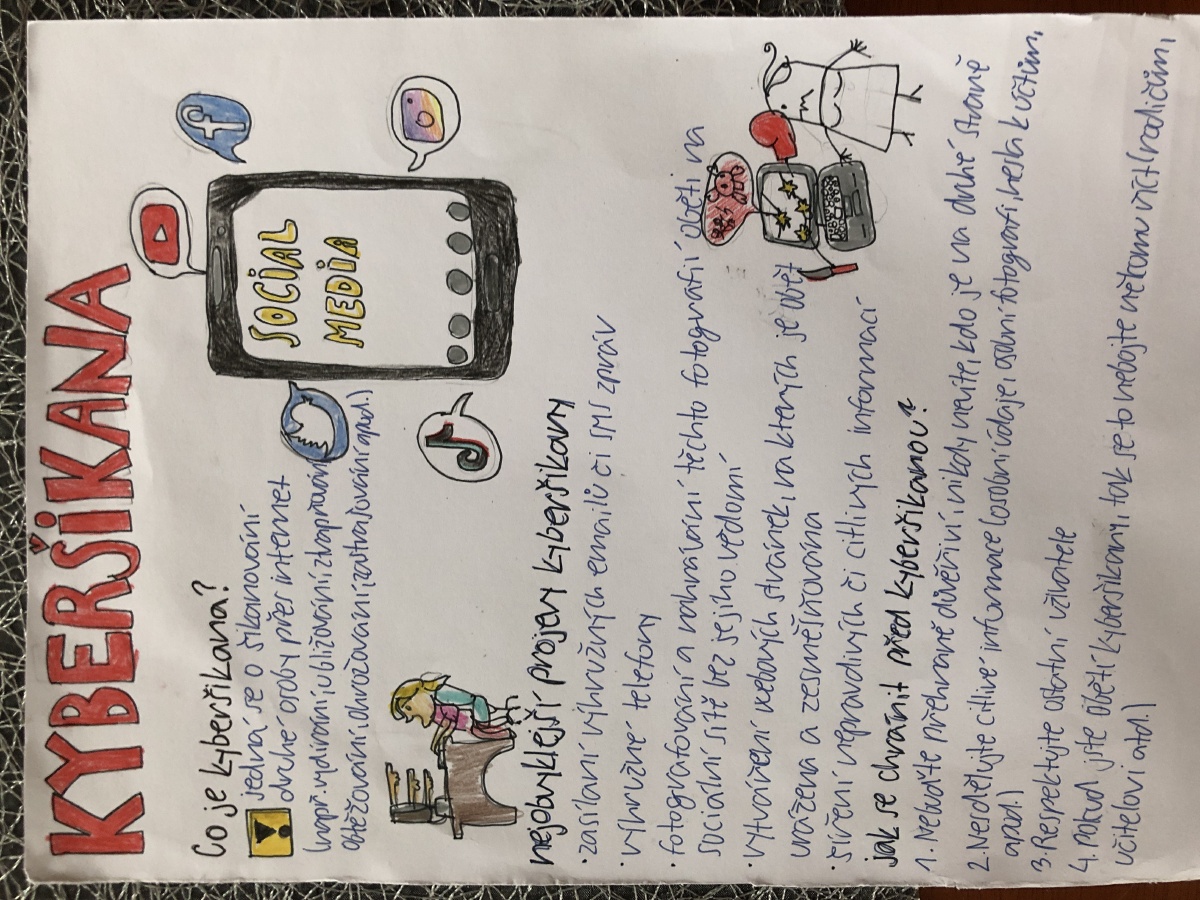 KYBERŠIKANA
Co je kyberšikana?
Jedná se o šikanování
druhé osoby přes internet
(např. vydírání, ubližování, ztrapňování
obtěžování, ohrožování, zastrašování apod.)
SOCIAL
MEDIA
nejobvyklejší projevy kyberšikany
· zasílání výhružných emailů či SMS zpráv
· výhružné telefony
· fotografování a nahrávání těchto fotografií oběti na
sociální sítě bez jejího vědomí
· vytváření webových stránek, na kterých je oběť
urážena a zesměšňována
· šíření nepravdivých či citlivých informací
jak se chránit před kyberšikanou?
1. Nebuďte přehnaně důvěřiví, nikdy nevíte, kdo je na druhé straně
2. Nesdělujte citlivé informace (osobní údaje, osobní fotografii, hesla k účtům,
apod.)
3. Respektujte ostatní uživatele
4. Pokud jste obětí kyberšikany, tak se to nebojte někomu říct (rodičům,
učitelovi atd.)